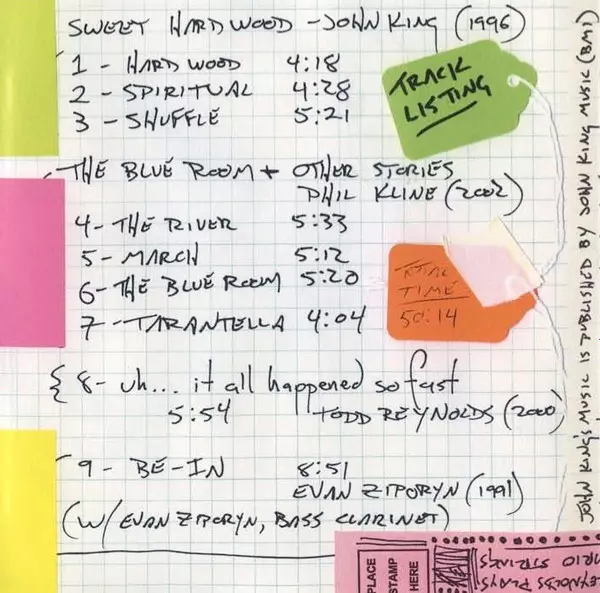 SWEET HARDWOOD - JOHN KING (1996)
1 - HARDWOOD 4:18
2 - SPIRITUAL 4:28
3 - SHUFFLE 5:21
TRACK
LISTING
THE BLUE ROOM + OTHER STORIES
PHIL KLINE (2002)
4 - THE RIVER 5:33
5 - MARCH 5:12
6 - THE BLUE ROOM 5:20
7 - TARANTELLA 4:04
TOTAL
TIME
50:14
8 - uh... it all happened so fast
5:54 TODD REYNOLDS (2000)
9 - BE-IN 8:51
EVAN ZIPORYN (1991)
(W/ EVAN ZIPORYN, BASS CLARINET)
JOHN KING'S MUSIC IS PUBLISHED BY JOHN KING MUSIC (BMI)
PLACE
STAMP
HERE
PLAYS
STRINGS